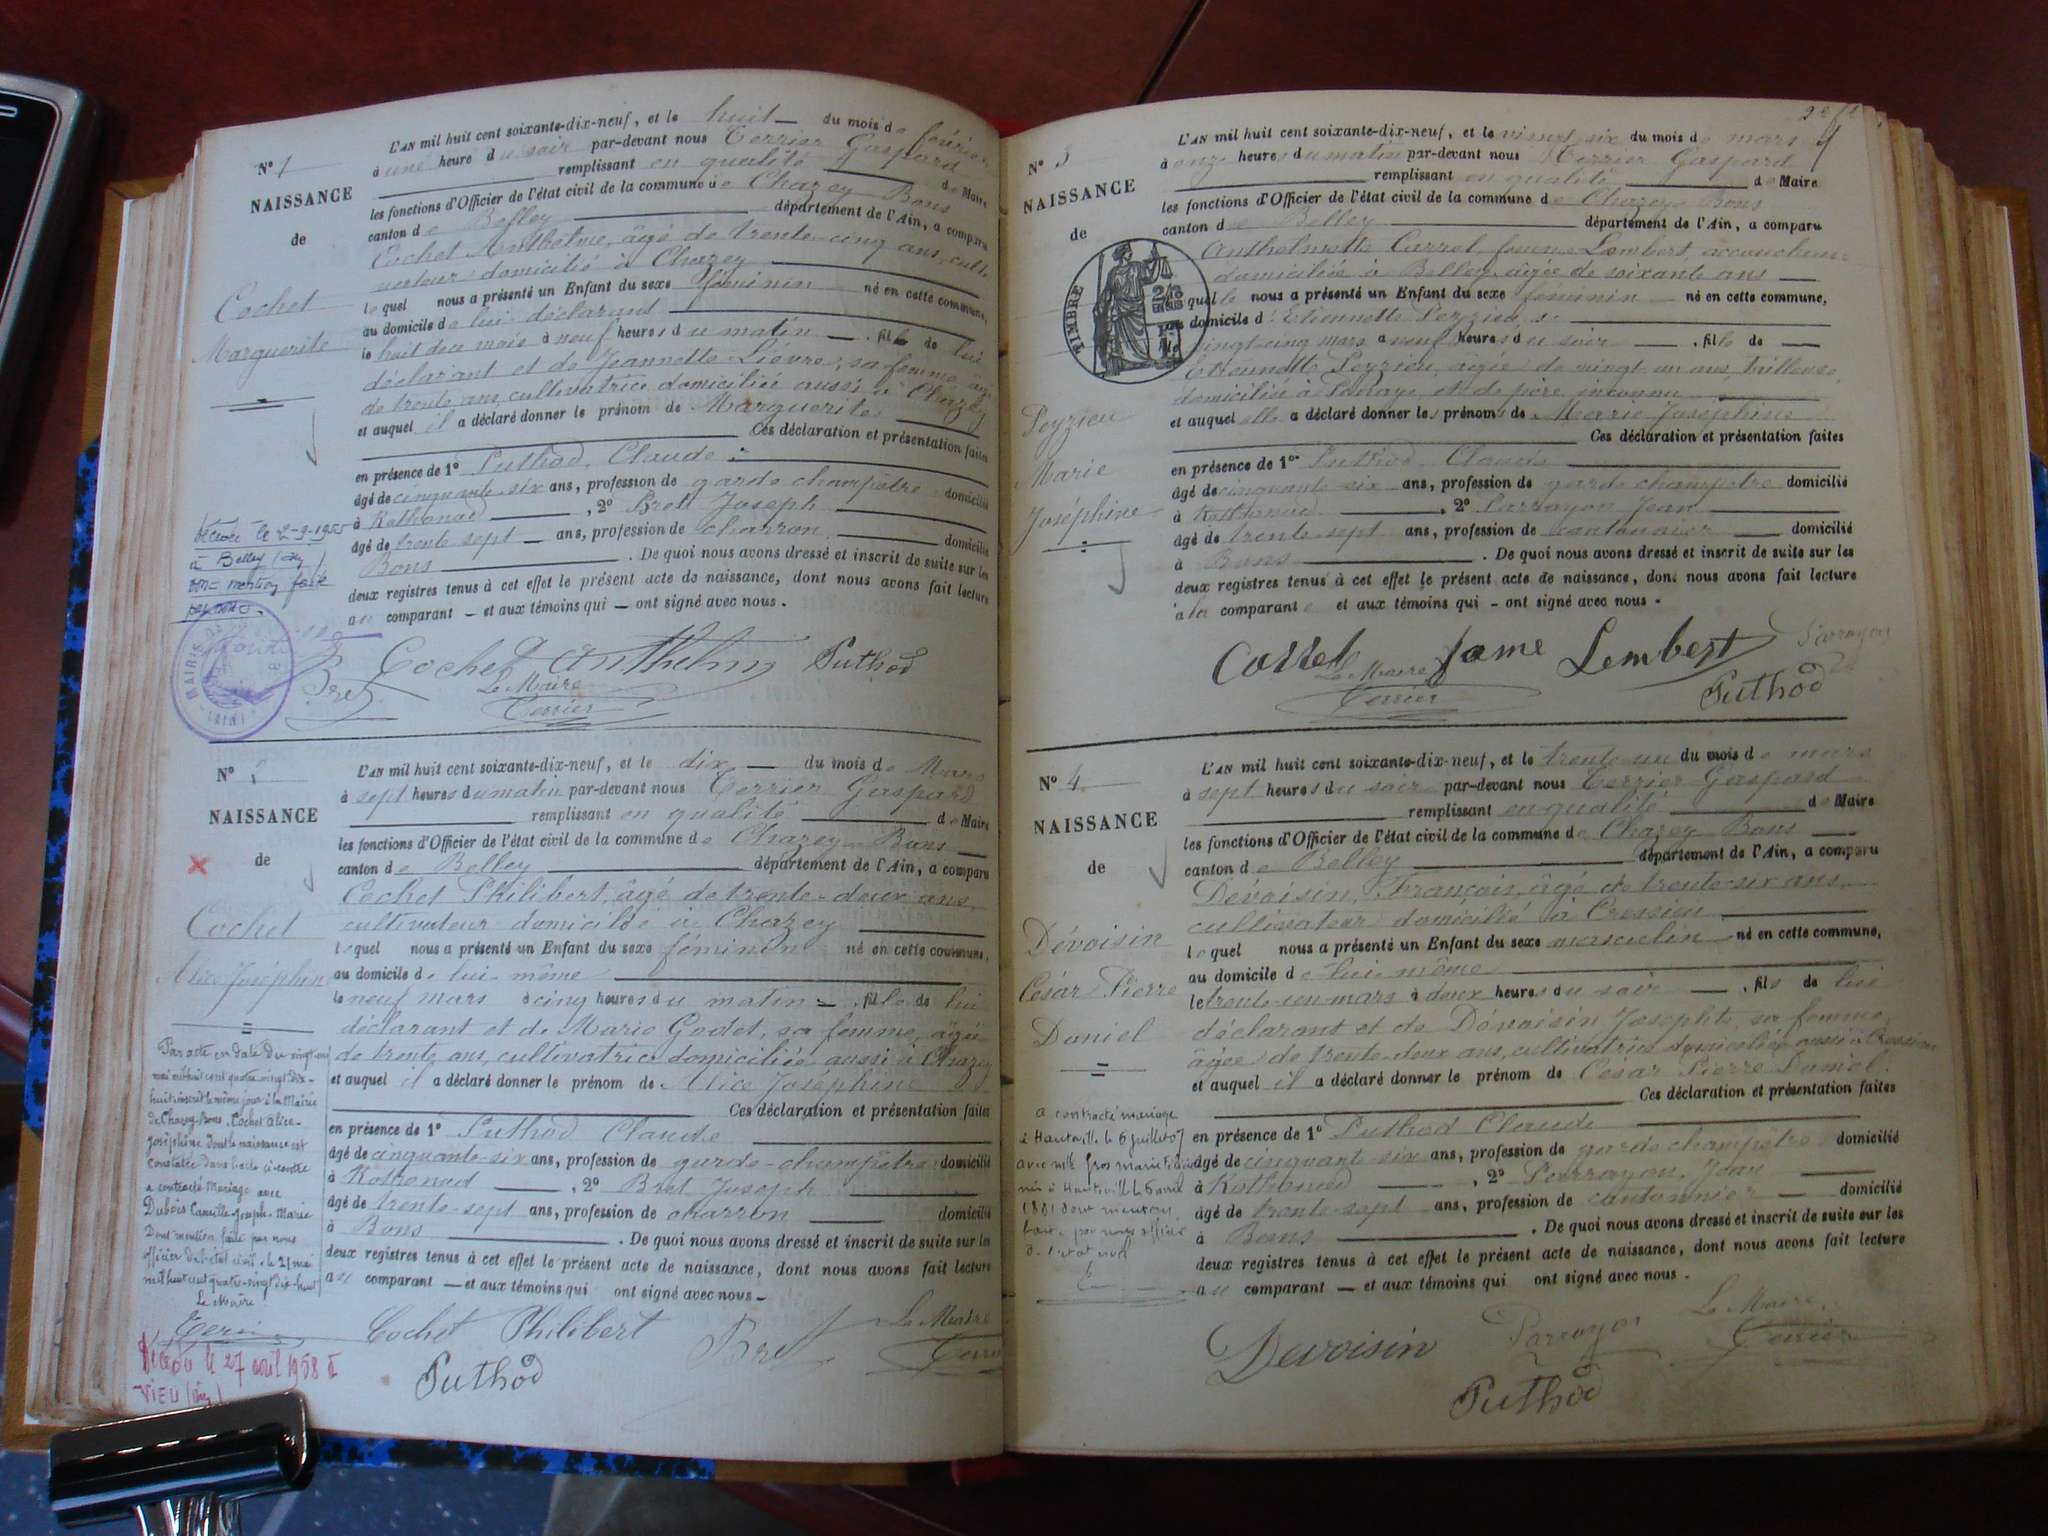 L'AN mil huit cent soixante-dix-neuf, et le huit — du mois de février
N° 1
à une heure du soir par-devant nous Terrier Gaspard
remplissant en qualité de Maire
NAISSANCE
les fonctions d'Officier de l'état civil de la commune de Chazey Bons
de
canton de Belley département de l'Ain, a comparu
Cochet Anthelme, âgé de trente-cinq ans, culti
vateur domicilié à Chazey
Cochet
lequel nous a présenté un Enfant du sexe féminin né en cette commune,
au domicile de lui déclarant
Marguerite
le huit de ce mois à neuf heures du matin — , fille de lui
déclarant et de Jeannette Lièvre, sa femme, âgée
de trente ans, cultivatrice domiciliée aussi à Chazey
et auquel il a déclaré donner le prénom de Marguerite
Ces déclaration et présentation faites
en présence de 1° Puthod, Claude
âgé de cinquante-six ans, profession de garde champêtre domicilié
à Rothonod , 2° Bret Joseph
âgé de trente sept — ans, profession de charron domicilié
Bons . De quoi nous avons dressé et inscrit de suite sur les
deux registres tenus à cet effet le présent acte de naissance, dont nous avons fait lecture
au comparant — et aux témoins qui — ont signé avec nous.
Décédée le 2-9-1955
à Belley (Ain)
mention faite
par nous
MAIRIE
Cochet Anthelme Puthod
Bret Le Maire
Terrier
L'AN mil huit cent soixante-dix-neuf, et le dix — du mois de Mars
N° 2
à sept heures du matin par-devant nous Terrier Gaspard
remplissant en qualité de Maire
NAISSANCE
les fonctions d'Officier de l'état civil de la commune de Chazey Bons
de
canton de Belley département de l'Ain, a comparu
Cochet Philibert, âgé de trente-deux ans,
cultivateur domicilié à Chazey
Cochet
lequel nous a présenté un Enfant du sexe féminin né en cette commune,
au domicile de lui-même
Alice Joséphine
le neuf mars à cinq heures du matin — , fille de lui
déclarant et de Marie Godet, sa femme, âgée
de trente ans, cultivatrice domiciliée aussi à Chazey
et auquel il a déclaré donner le prénom de Alice Joséphine
Ces déclaration et présentation faites
en présence de 1° Puthod Claude
âgé de cinquante-six ans, profession de garde-champêtre domicilié
à Rothonod , 2° Bret Joseph
âgé de trente-sept ans, profession de charron domicilié
à Bons . De quoi nous avons dressé et inscrit de suite sur les
deux registres tenus à cet effet le présent acte de naissance, dont nous avons fait lecture
au comparant — et aux témoins qui ont signé avec nous —
Par acte en date du vingt un
mai mil huit cent quatre vingt dix-
huit inscrit le même jour à la Mairie
de Chazey-Bons, Cochet Alice-
Joséphine dont la naissance est
constatée dans l'acte ci-contre
a contracté Mariage avec
Dubois Camille Joseph Marie
Dont mention faite par nous
officier de l'état civil, le 21 mai
mil huit cent quatre-vingt dix-huit
Le Maire
Terrier
Décédée le 27 avril 1958 à
VIEU (Ain)
Cochet Philibert Bret Le Maire
Puthod Terrier
L'AN mil huit cent soixante-dix-neuf, et le vingt six du mois de mars
N° 3
à onze heures du matin par-devant nous Terrier Gaspard
remplissant en qualité de Maire
NAISSANCE
les fonctions d'Officier de l'état civil de la commune de Chazey Bons
de
canton de Belley département de l'Ain, a comparu
Anthelmette Carrel, femme Lembert, accoucheuse
domiciliée à Belley, âgée de soixante ans —
TIMBRE
quelle nous a présenté un Enfant du sexe féminin né en cette commune,
au domicile d'Etiennette Peyzieu
vingt-cinq mars à neuf heures du soir — , fille de —
Etiennette Peyzieu, âgée de vingt un ans, tailleuse,
domiciliée à et de père inconnu
et auquel elle a déclaré donner les prénoms de Marie Joséphine
Peyzieu
Ces déclaration et présentation faites
Marie
en présence de 1° Puthod Claude
âgé de cinquante-six ans, profession de garde champêtre domicilié
Joséphine
à Rothonod , 2° Parrayon Jean
âgé de trente-sept ans, profession de cantonnier — domicilié
à Bons . De quoi nous avons dressé et inscrit de suite sur les
deux registres tenus à cet effet le présent acte de naissance, dont nous avons fait lecture
à la comparante et aux témoins qui — ont signé avec nous.
Carrel fame Lembert Parrayon
Le Maire
Terrier Puthod
L'AN mil huit cent soixante-dix-neuf, et le trente-un du mois de mars
N° 4
à sept heures du soir par-devant nous Terrier Gaspard
remplissant en qualité de Maire
NAISSANCE
les fonctions d'Officier de l'état civil de la commune de Chazey Bons
de
canton de Belley département de l'Ain, a comparu
Dévoisin, François, âgé de trente-six ans,
cultivateur domicilié à Cressieu
Dévoisin
lequel nous a présenté un Enfant du sexe masculin né en cette commune,
au domicile de lui-même
César Pierre
le trente-un mars à deux heures du soir — , fils de lui
Daniel
déclarant et de Dévoisin Josephte, sa femme,
âgée de trente-deux ans, cultivatrice domiciliée aussi à Cressieu
et auquel il a déclaré donner le prénom de César Pierre Daniel.
Ces déclaration et présentation faites
en présence de 1° Puthod Claude
âgé de cinquante six ans, profession de garde champêtre domicilié
à Rothonod , 2° Parrayon, Jean
âgé de trente-sept ans, profession de cantonnier — domicilié
à Bons . De quoi nous avons dressé et inscrit de suite sur les
deux registres tenus à cet effet le présent acte de naissance, dont nous avons fait lecture
au comparant — et aux témoins qui ont signé avec nous.
a contracté mariage
à Hauteville le 6 juillet 07
avec Mlle Gros Marie
née à Hauteville le
1881 dont mention
faite par nous officier
de l'état civil
Devoisin Parrayon Le Maire
Terrier
Puthod